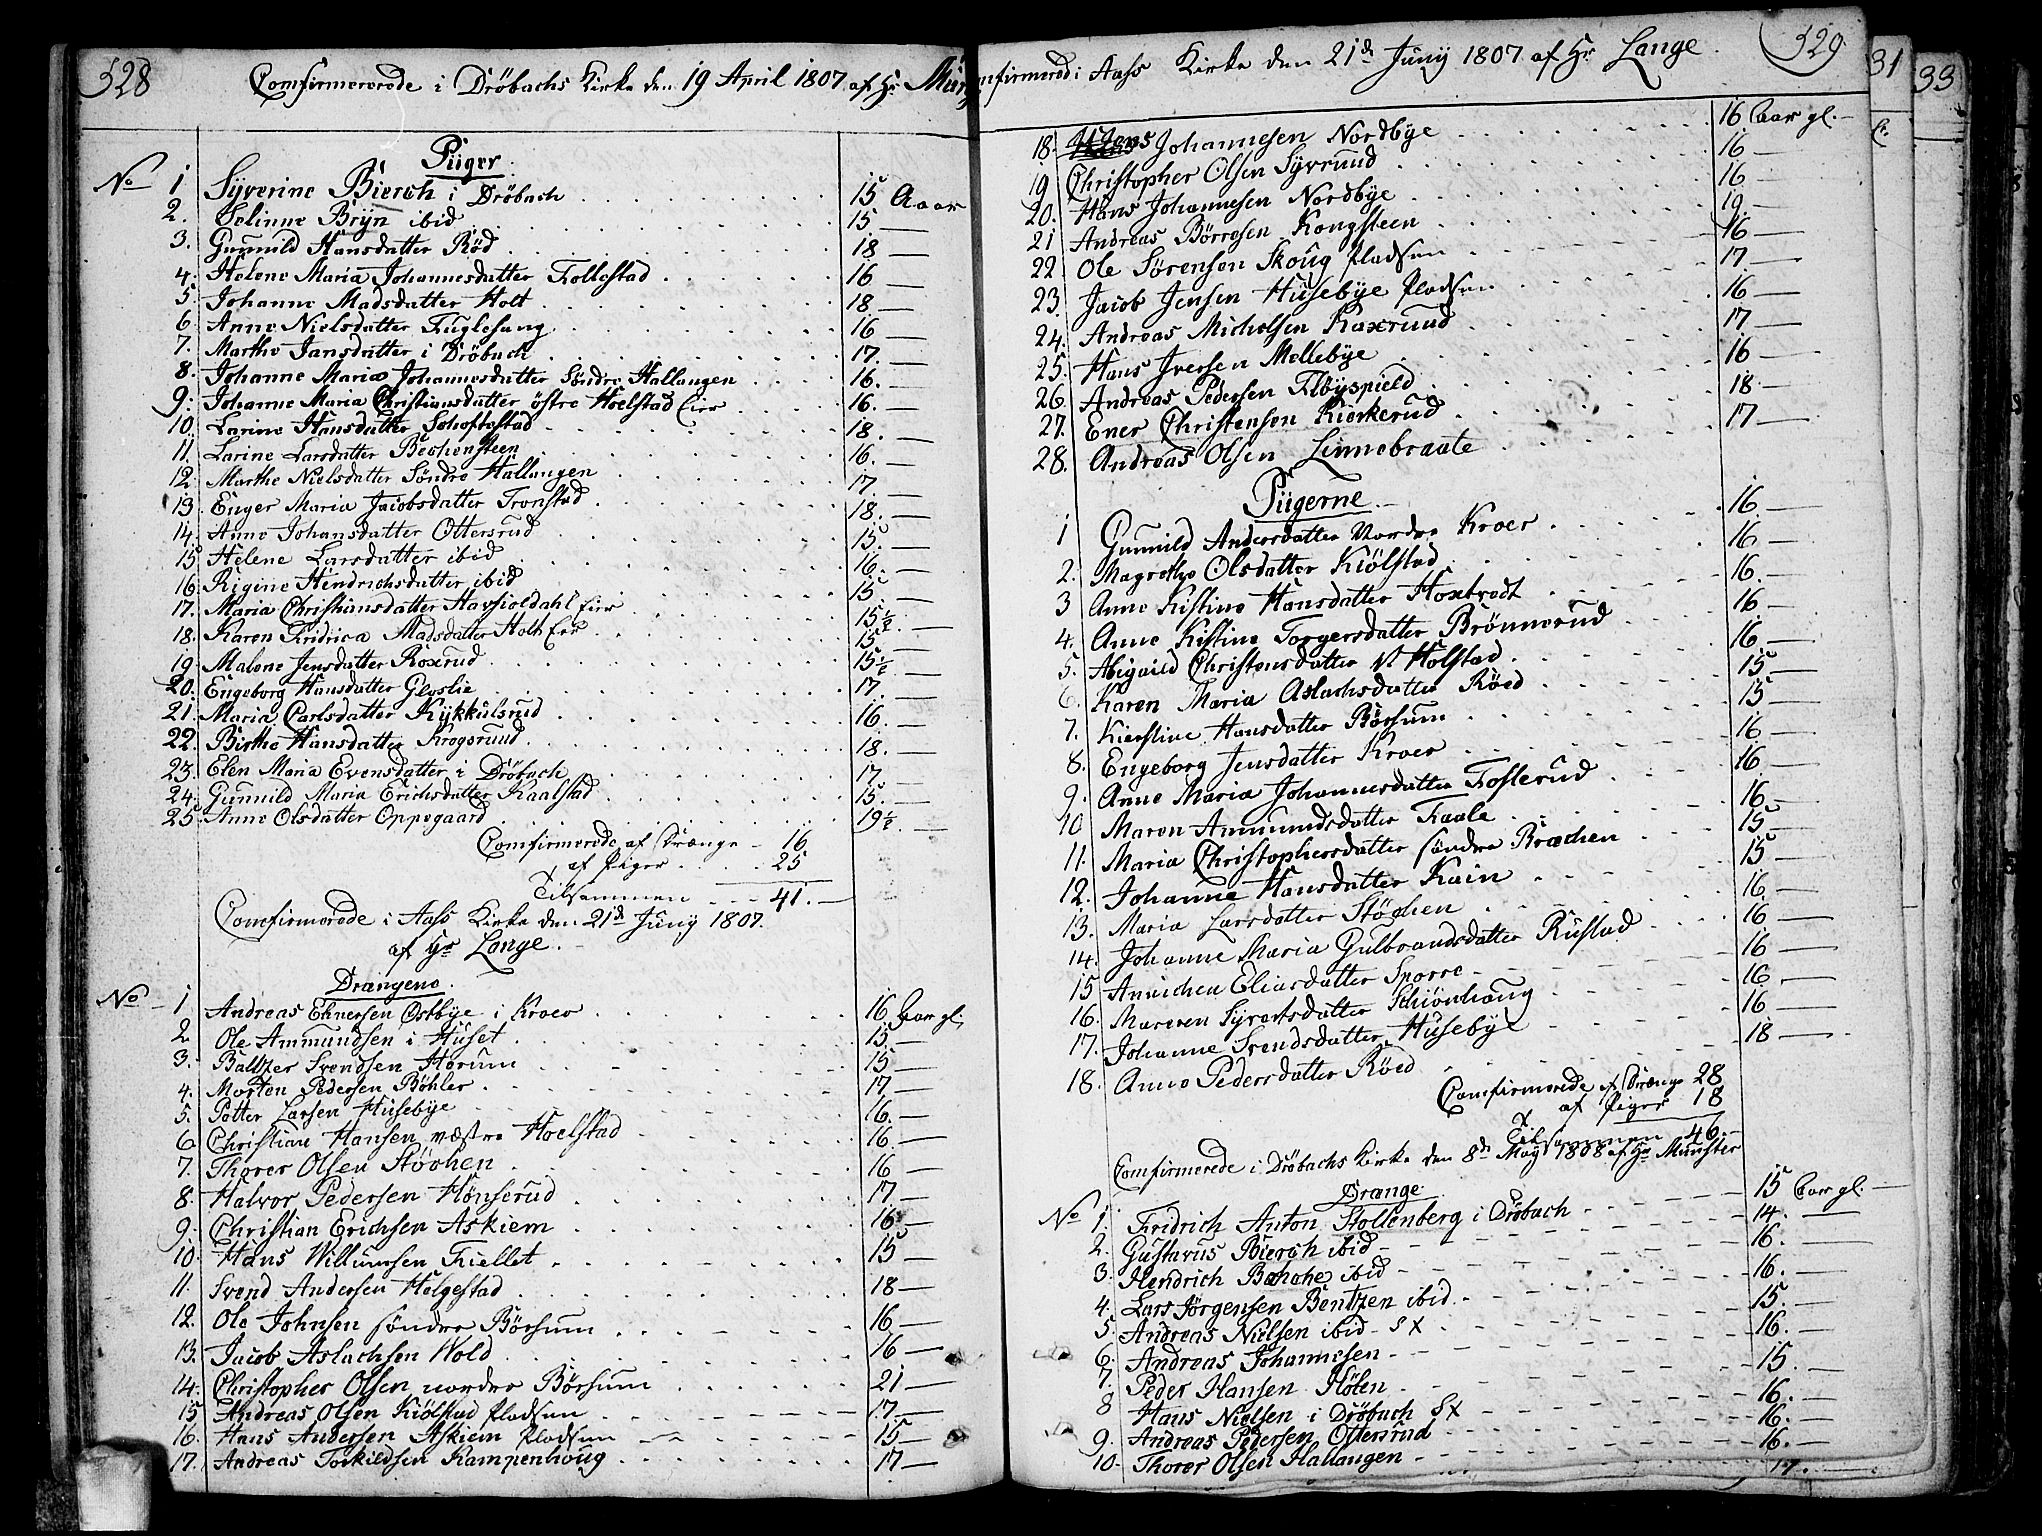 328
Comfirmererede i Dröbachs Kirke den 19 April 1807 af Hr
Piiger
No 1 Syverine Biersch i Dröbach 15 Aaar
2. Seline Bryn ibid 15. —
3. Gunnild Hansdatter Röd 18 —
4. Helene Maria Johannesdatter Follestad 16 —
5. Johanne Madsdatter Holt 18 —
6. Anne Nielsdatter Fuglesang 16 —
7. Marthe Jansdatter i Dröbach 17. —
8. Johanne Maria Johannesdatter Söndre Hallangen 16. —
9. Johanne Maria Christiansdatter östre Hoelstad Eier 16. —
10. Larine Hansdatter Schoftestad 18. —
11. Larine Larsdatter Bechensteen 16. —
12. Marthe Nielsdatter Söndre Hallangen 17. —
13. Enger Maria Jacobsdatter Tronstad 18. —
14. Anne Johansdatter Ottersrud 15. —
15 Helene Larsdatter ibid 16. —
16. Rigine Hendrichsdatter ibid 15 —
17. Maria Christiansdatter Havsioldahl Eier 15½ —
18. Karen Fridrica Madsdatter Holt Eier 15 —
19. Malene Jensdatter Roxrud 15½ —
20. Engeborg Hansdatter Glyslie 17. —
21. Maria Carlsdatter Kykkulsrud 16. —
22. Birthe Hansdatter Krogsruud 18. —
23. Elen Maria Evensdatter i Dröbach 17. —
24. Gunnild Maria Erichsdatter Kaalstad 15. —
25 Anne Olsdatter Oppegaard 19½. —
Comfirmerede af Drænge - 16
af Piger 25
Tilsammen 41. —
Comfirmerede i Aass Kirke den 21de Juny 1807.
af Hr Lange.
Drængene.
No 1 Andreas Ehnersen Ostbye i Kroer 16 Aar gl.
2 Ole Ammundsen i Huset 15 —
3. Baltzer Svendsen Horum 15 —
4. Morten Pedersen Böhler 17 —
5. Petter Larsen Husebye 16. —
6 Christian Hansen væstre Hoelstad 16 —
7. Thorer Olsen Stöchen 16 —
8. Halvor Pedersen Hönserud 17 —
9. Christian Erichsen Askiem 16 —
10. Hans Willumsen Fiellet 15 —
11. Svend Andersen Helgestad 18 —
12. Ole Johnsen söndre Börsum 16 —
13. Jacob Aslachsen Wold 16 —
14. Christopher Olsen nordre Börsum 21 —
15 Andreas Olsen Kiölstad Pladsen 17 —
16. Hans Andersen Askiem Pladsen 15 —
17. Andreas Torkildsen Kampenhoug 17 —
329
Comfirmered i Aass Kirke den 21de Juny 1807 af Hr Lange
18. Johannesen Nordbye 16 Aar gl. —
19 Christopher Olsen Syvruud 16 —
20. Hans Johannesen Nordbye 16 —
21 Andreas Börresen Kongsteen 19 —
22 Ole Sörensen Skoug Pladsen 16 —
23. Jacob Jensen Husebye Pladsen 17 —
24. Andreas Michelsen Raxruud 16 —
25. Hans Iversen Mellebye 17 —
26 Andreas Pedersen Flöyspield 16 —
27. Ener Christensen Kierkerud 18 —
28. Andreas Olsen Linnebraate 17 —
Piigerne.
1 Gunnild Andersdatter Nordre Kroer 16 —
2. Magrethe Olsdatter Kiölstad 16 —
3 Anne Kistine Hansdatter Hoxtvedt 16. —
4. Anne Kistine Torgersdatter Brönnerud 16 —
5. Abigaild Christensdatter V Holstad 16 —
6. Karen Maria Aslachsdatter Röed 15 —
7. Kierstine Hansdatter Börsum 15 —
8. Engeborg Jensdatter Kroer 16 —
9. Anne Maria Johannesdatter Foslerud 16 —
10 Maren Ammundsdatter Faale 16 —
11. Maria Christophersdatter söndre Brochen 15 —
12. Johanne Hansdatter Kain 15 —
13. Maria Larsdatter Stöchen 16 —
14. Johanne Maria Gulbrandsdatter Rustad 16 —
15 Annichen Eliasdatter Sporre 16 —
16. Mareren Syvertsdatter Schiönhaug 16 —
17. Johanne Svendsdatter Husebye 16 —
18. Anne Pedersdatter Röed 18 —
Comfirmerede af Drænge 28
af Piger 18
Tilsammen 46. —
Comfirmerede i Dröbachs Kirke den 8de May 1808 af Hr Munster
Drænge
No 1. Fridrich Anton Stollenberg i Dröbach 15 Aar gl. —
2. Gustavus Biersch ibid 14. —
3. Hendrich Banche ibid 16. —
4. Lars Jörgensen Bentzen ibid 16. —
5. Andreas Nielsen ibid - SX 15. —
6. Andreas Johannesen 16. —
7. Peder Hansen Hölen 15. —
8 Hans Nielsen i Dröbach SX 16. —
9. Andreas Pedersen Ottersrud 16. —
10. Thorer Olsen Hallangen 16. —
17. —
31
33